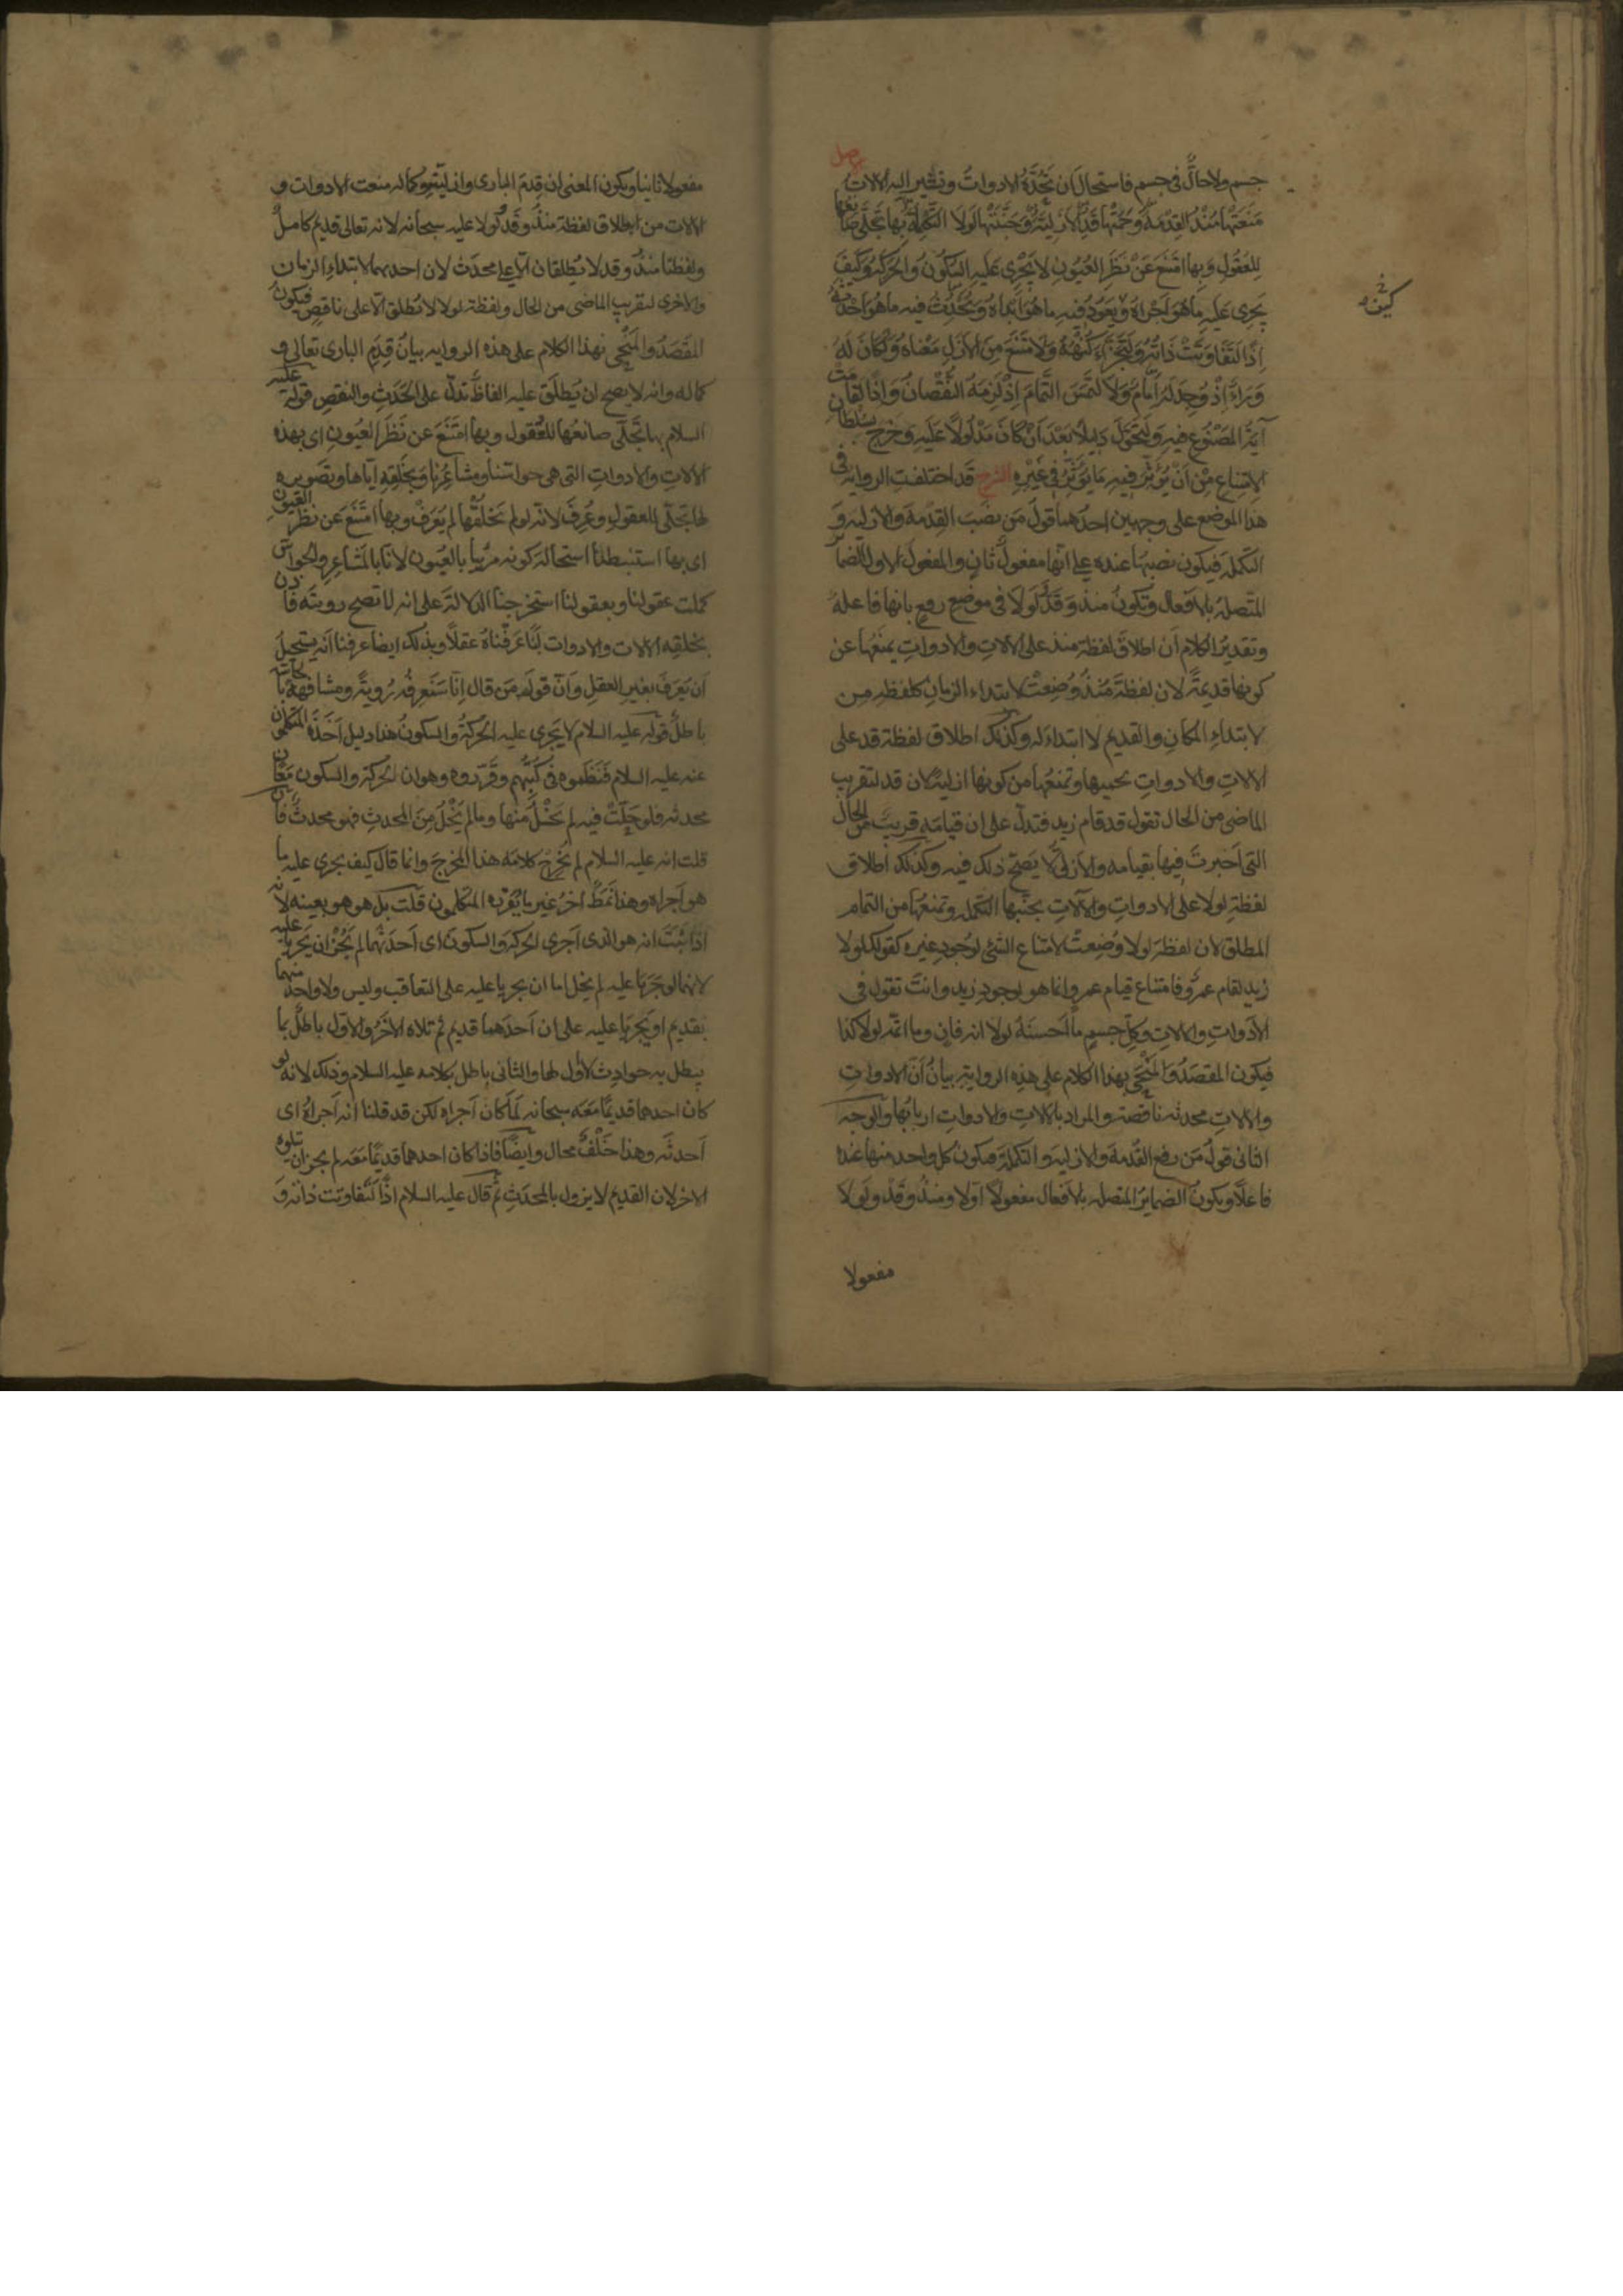 الاصل
جسم ولا حالّ فى جسم فاستحال ان تحدّه الادوات وتشير اليه الالات
مَنَعَتْهَا مُنْذُ القِدْمَةَ وَحَمَتْهَا قَدُ الاَزَلِيَّةَ وَجَنَّبَتْهَا لَولَا التَّكْمِلَةَ بِهَا تَجَلَّى صَانِعُهَا
لِلعُقُولِ وَبِهَا امْتَنَعَ عَنْ نَظَرِ العُيُونِ لَا يَجْرِى عَلَيهِ السُّكُونُ وَالحَرَكَةُ وَكَيفَ
يَجرِى عَلَيهِ مَا هُوَ اَجْرَاهُ وَيَعُودُ فِيهِ مَا هُوَ اَبْدَاهُ وَيَحْدُثُ فِيهِ مَا هُوَ اَحْدَثَهُ
اِذًا لَتَفَاوَتَتْ ذَاتُهُ وَلَتَجَزَّاَ كُنْهُهُ وَلَامْتَنَعَ مِنَ الاَزَلِ مَعْنَاهُ وَلَكَانَ لَهُ
وَرَاءٌ اِذْ وُجِدَ لَهُ اَمَامٌ وَلَالْتَمَسَ التَّمَامَ اِذْ لَزِمَهُ النُّقْصَانُ وَاِذًا لَقَامَتْ
آيَةُ المَصْنُوعِ فِيهِ وَلَتَحَوَّلَ دَلِيلًا بَعْدَ اَنْ كَانَ مَدْلُولًا عَلَيهِ وَخَرَجَ بِسُلْطَانِ
الِامْتِنَاعِ مِنْ اَنْ يُؤَثِّرَ فِيهِ مَا يُؤَثِّرُ فِى غَيْرِهِ الشرح قد اختلفت الرواية فى
هذا الموضع على وجهين احدهما قول من نصب القدمة والازلية و
التكملة فيكون نصبها عنده على انها مفعول ثان والمفعول الاول الضمائر
المتصلة بالافعال وتكون منذ وقد ولولا فى موضع رفع بانها فاعلة
وتقدير الكلام ان اطلاق لفظة منذ على الالات والادوات يمنعها عن
كونها قديمة لان لفظة منذ وضعت لابتداء الزمان كلفظة من
لابتداء المكان والقديم لا ابتداء له وكذلك اطلاق لفظة قد على
الالات والادوات تحميها وتمنعها من كونها ازلية لان قد لتقريب
الماضى من الحال تقول قد قام زيد فتدل على ان قيامه قريب من الحال
التى اخبرت فيها بقيامه والازلى لا يصح ذلك فيه وكذلك اطلاق
لفظة لولا على الادوات والآلات يجنبها التكملة وتمنعها من التمام
المطلق لان لفظة لولا وضعت لامتناع الشئ لوجود غيره كقولك لولا
زيد لقام عمرو فامتناع قيام عمرو انما هو لوجود زيد وانت تقول فى
الادوات والالات وكل جسم ما احسنه لولا انه فان وما اتمه لولا كذا
فيكون المقصد والمنحى بهذا الكلام على هذه الرواية بيان ان الادوات
والالات محدثة ناقصة والمراد بالالات والادوات اربابها والوجه
الثانى قول من رفع القدمة والازلية والتكملة فيكون كل واحد منها عنده
فاعلا ويكون الضماير المتصلة بالافعال مفعولا اولا ومنذ وقد ولولا
مفعولا
مفعولا ثانيا ويكون المعنى ان قدم البارى وازليته وكماله منعت الادوات و
الالات من اطلاق لفظة منذ وقد ولولا عليه سبحانه لانه تعالى قديم كامل
ولفظتا منذ وقد لا يطلقان الا على محدث لان احديهما لابتداء الزمان
والاخرى لتقريب الماضى من الحال ولفظة لولا لا تطلق الا على ناقص فيكون
المقصد والمنحى بهذا الكلام على هذه الرواية بيان قدم البارى تعالى و
كماله وانه لا يصح ان يطلق عليه الفاظ تدل على الحدث والنقص قوله عليه
السلام بها تجلى صانعها للعقول وبها امتنع عن نظر العيون اى بهذه
الالات والادوات التى هى حواسنا ومشاعرنا وبخلقه اياها وتصويره
لها تجلى للعقول وعرف لانه لو لم يخلقها لم يعرف وبها امتنع عن نظر العيون
اى بها استنبطنا استحالة كونه مرئيا بالعيون لانا بالمشاعر والحواس
كملت عقولنا وبعقولنا استخرجنا الدلالة على انه لا تصح رويته فاذن
بخلقه الالات والادوات لنا عرفناه عقلا وبذلك ايضا عرفنا انه يستحيل
ان يعرف بغير العقل وان قول من قال انا سنعرفه روية ومشافهة بالحاسة
باطل قوله عليه السلام لا يجرى عليه الحركة والسكون هذا دليل اخذه المتكلمون
عنه عليه السلام فنظموه فى كتبهم وقرروه وهو ان الحركة والسكون معان
محدثة فلو حلت فيه لم يخل منها وما لم يخل من المحدث فهو محدث فان
قلت انه عليه السلام لم يخرج كلامه هذا المخرج وانما قال كيف يجرى عليه ما
هو اجراه وهذا نمط آخر غير ما يقرره المتكلمون قلت بل هو هو بعينه لانه
اذا ثبت انه هو الذى اجرى الحركة والسكون اى احدثهما لم يجز ان يجريا عليه
لانهما لو جريا عليه لم يخل اما ان يجريا عليه على التعاقب وليس ولا واحد منهما
بقديم او يجريا عليه على ان احدهما قديم ثم تلاه الاخر والاول باطل بما
يبطل به حوادث لا اول لها والثانى باطل بكلامه عليه السلام وذلك لانه لو
كان احدهما قديما معه سبحانه لما كان اجراه لكن قد قلنا انه اجراه اى
احدثه وهذا خلف محال وايضا فاذا كان احدهما قديما معه لم يجز ان يتلوه
الاخر لان القديم لا يزول بالمحدث ثم قال عليه السلام اذا لتفاوتت ذاته و